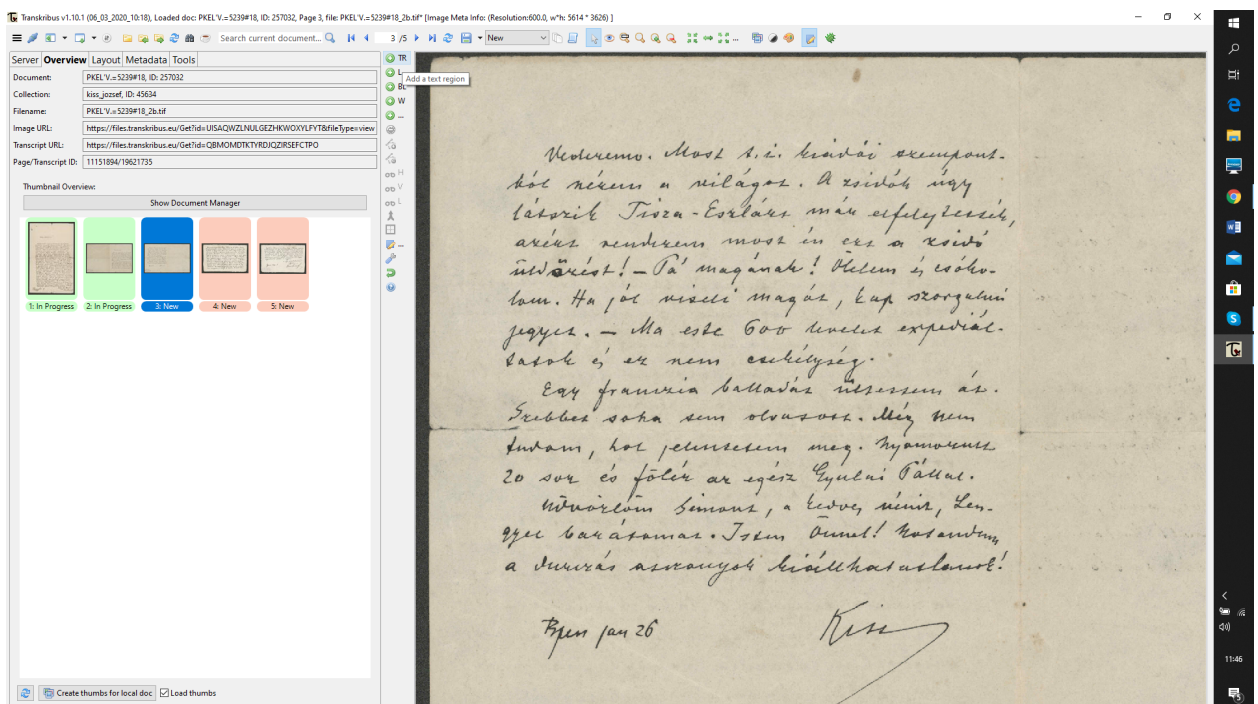 Transkribus v1.10.1 (06_03_2020_10:18), Loaded doc: PKEL'V.=5239#18, ID: 257032, Page 3, file: PKEL'V.=5239#18_2b.tif* [Image Meta Info: (Resolution:600.0, w*h: 5614 * 3626) ]
Search current document... 3 /5 New
Server Overview Layout Metadata Tools
Document: PKEL'V.=5239#18, ID: 257032
Collection: kiss_jozsef, ID: 45634
Filename: PKEL'V.=5239#18_2b.tif
Image URL: https://files.transkribus.eu/Get?id=UISAQWZLNULGEZHKWOXYLFYT&fileType=view
Transcript URL: https://files.transkribus.eu/Get?id=QBMOMDTKTYRDJQZIRSEFCTPO
Page/Transcript ID: 11151894/19621735
Thumbnail Overview:
Show Document Manager
1: In Progress 2: In Progress 3: New 4: New 5: New
Create thumbs for local doc Load thumbs
TR
L
Add a text region
BL
W
...
H
V
L
Vederemo. Most t. i. kiadói szempont-
ból nézem a világot. A zsidók úgy
látszik Tisza-Eszlárt már elfelejtették,
azért rendezem most én ezt a zsidó
üldözést! – Pá magának! Ölelem és csóko-
lom. Ha jól viseli magát, kap szorgalmi
jegyet. – Ma este 600 levelet expediál-
tatok és ez nem csekélység.
Egy franczia balladát ültettem át.
Szebbet soha sem olvasott. Még nem
tudom, hol jelentetem meg. Nyomorult
20 sor és fölér az egész Gyulai Pállal.
Üdvözlöm Simont, a kedves nénit, Len-
gyel barátomat. Isten Önnel!
a duzzás asszonyok kiállhatatlanok!
Bpest jan 26 Kiss
11:46